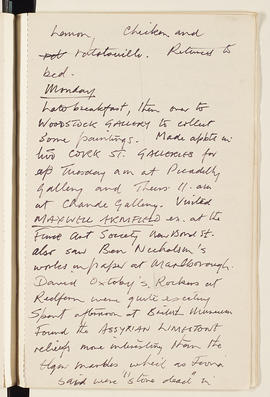 Lemon, Chicken and
ratatouille. Returned to
bed.
Monday
Late breakfast, then over to
WOODSTOCK GALLERY to collect
some paintings. Made appts in
two CORK ST. GALLERIES for
Tuesday am at Piccadilly
Gallery and Thurs 11. am
at Grande Gallery. Visited
MAXWELL ARMFIELD ex. at the
Fine Art Society New Bond St.
also saw Ben Nicholson's
works on paper at Marlborough.
David Oxtoby's Rockers at
Redfern were quite exciting
Spent afternoon at British Museum
Found the ASSYRIAN LIMESTONE
reliefs more interesting than the
Elgin marbles which as
said were "stone dead" in